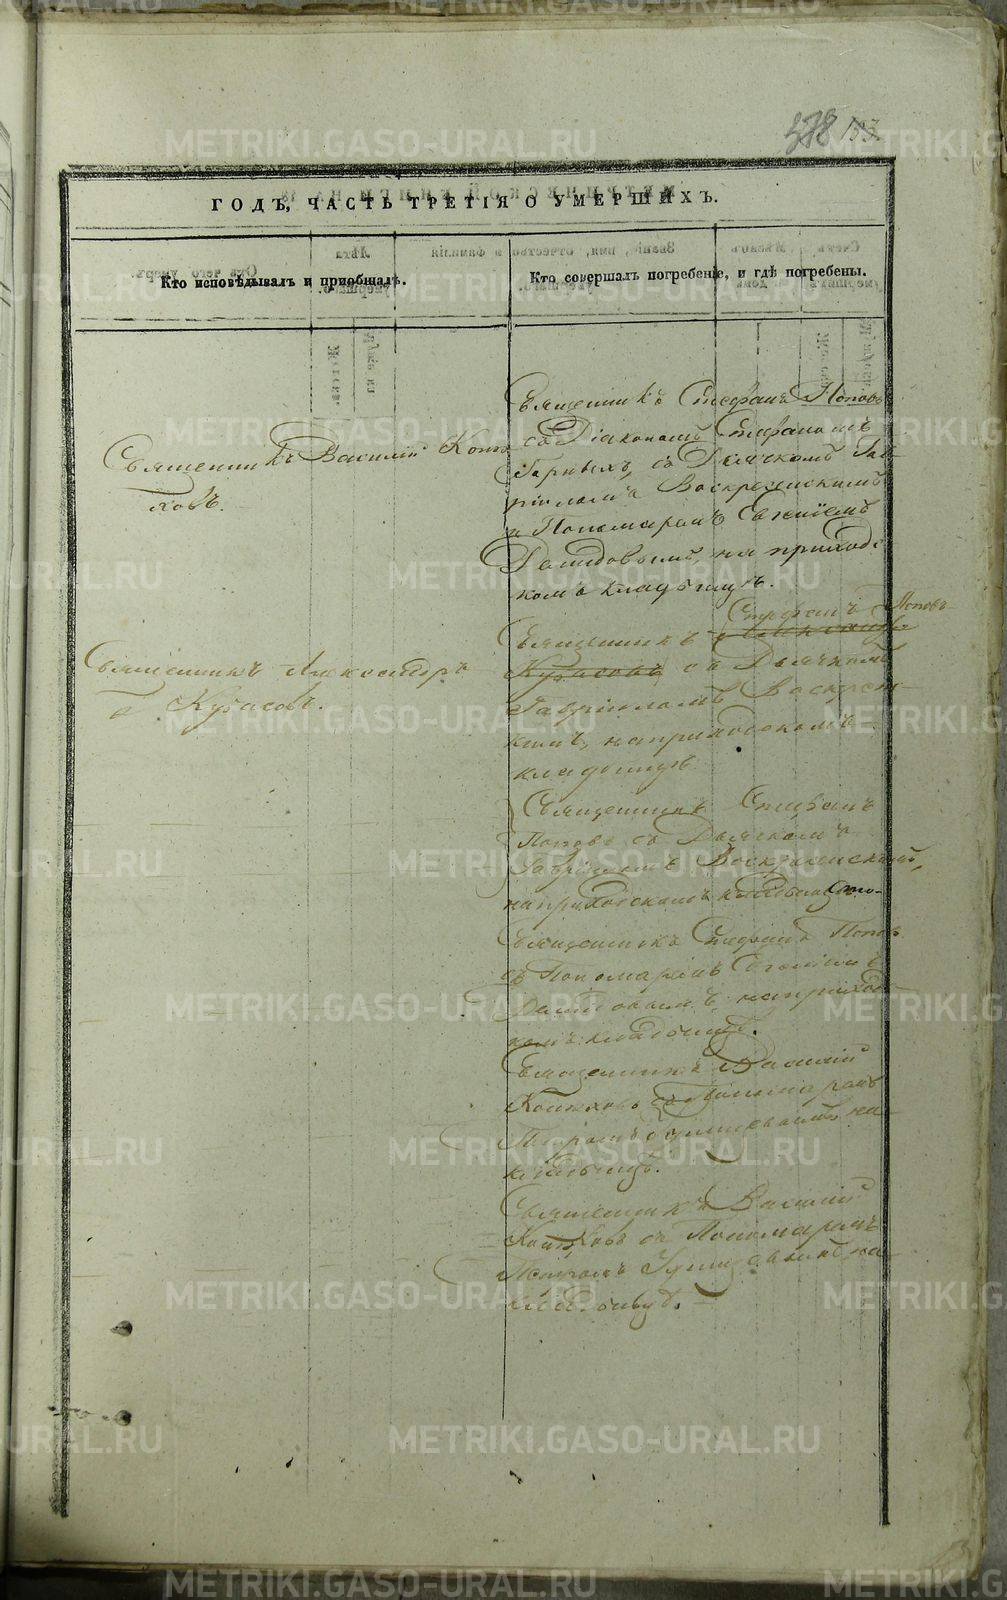 278 153
ГОДЪ, ЧАСТЬ ТРЕТІЯ О УМЕРШИХЪ.
Кто исповѣдывалъ и приобщалъ.
Кто совершалъ погребеніе, и гдѣ погребены.
Священникъ Василій Коню
ховъ.
Священникъ Александръ
Кузасовъ.
Священникъ Стефанъ Поповъ
съ Діакономъ Стефаномъ
съ Дьячкомъ Гав
ріиломъ Воскресенскимъ
и Пономаремъ Евгеніемъ
Давидовымъ, на приходс
комъ кладбищѣ.
Стефанъ Поповъ
Священникъ Александръ
Кузасовъ съ Дьячкомъ
Гавріиломъ Воскресенс
кимъ, на приходскомъ
кладбищѣ
Священникъ Стефанъ
Поповъ съ Дьячкомъ
Гавріиломъ Воскресенскимъ,
на приходскомъ кладбищѣ
Священникъ Стефанъ Поповъ
съ Пономаремъ Евгеніемъ
Давидовымъ, на приходс
комъ кладбищѣ.
Священникъ Василій
Конюховъ съ Пономаремъ
Петромъ на
кладбищѣ.
Священникъ Василій
Конюховъ съ Пономаремъ
Петромъ на
кладбищѣ.
METRIKI.GASO-URAL.RU